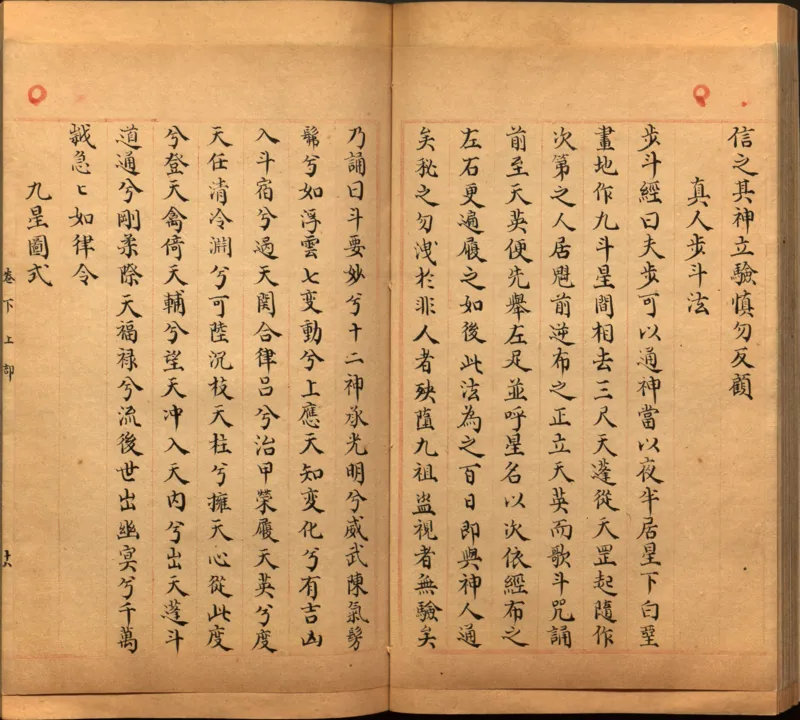 信之其神立驗慎勿反顧
真人步斗法
步斗經曰夫步可以通神當以夜半居星下白堊
畫地作九斗星間相去三尺天蓬從天罡起隨作
次第之人居魁前逆布之正立天英而歌斗咒誦
前至天英便先舉左足並呼星名以次依經布之
左右更遍履之如後此法為之百日即與神人通
矣秘之勿洩於非人者殃墮九祖盜視者無驗矣
乃誦曰斗要妙兮十二神承光明兮威武陳氣髣
髴兮如浮雲七变動兮上應天知变化兮有吉凶
入斗宿兮過天関合律吕兮治甲榮履天英兮度
天任清冷淵兮可陸沉枝天柱兮擁天心從此度
兮登天禽倚天輔兮望天冲入天内兮出天蓬斗
道通兮剛柔際天福禄兮流後世出幽冥兮千萬
越急〻如律令
九星圖式
卷下上部